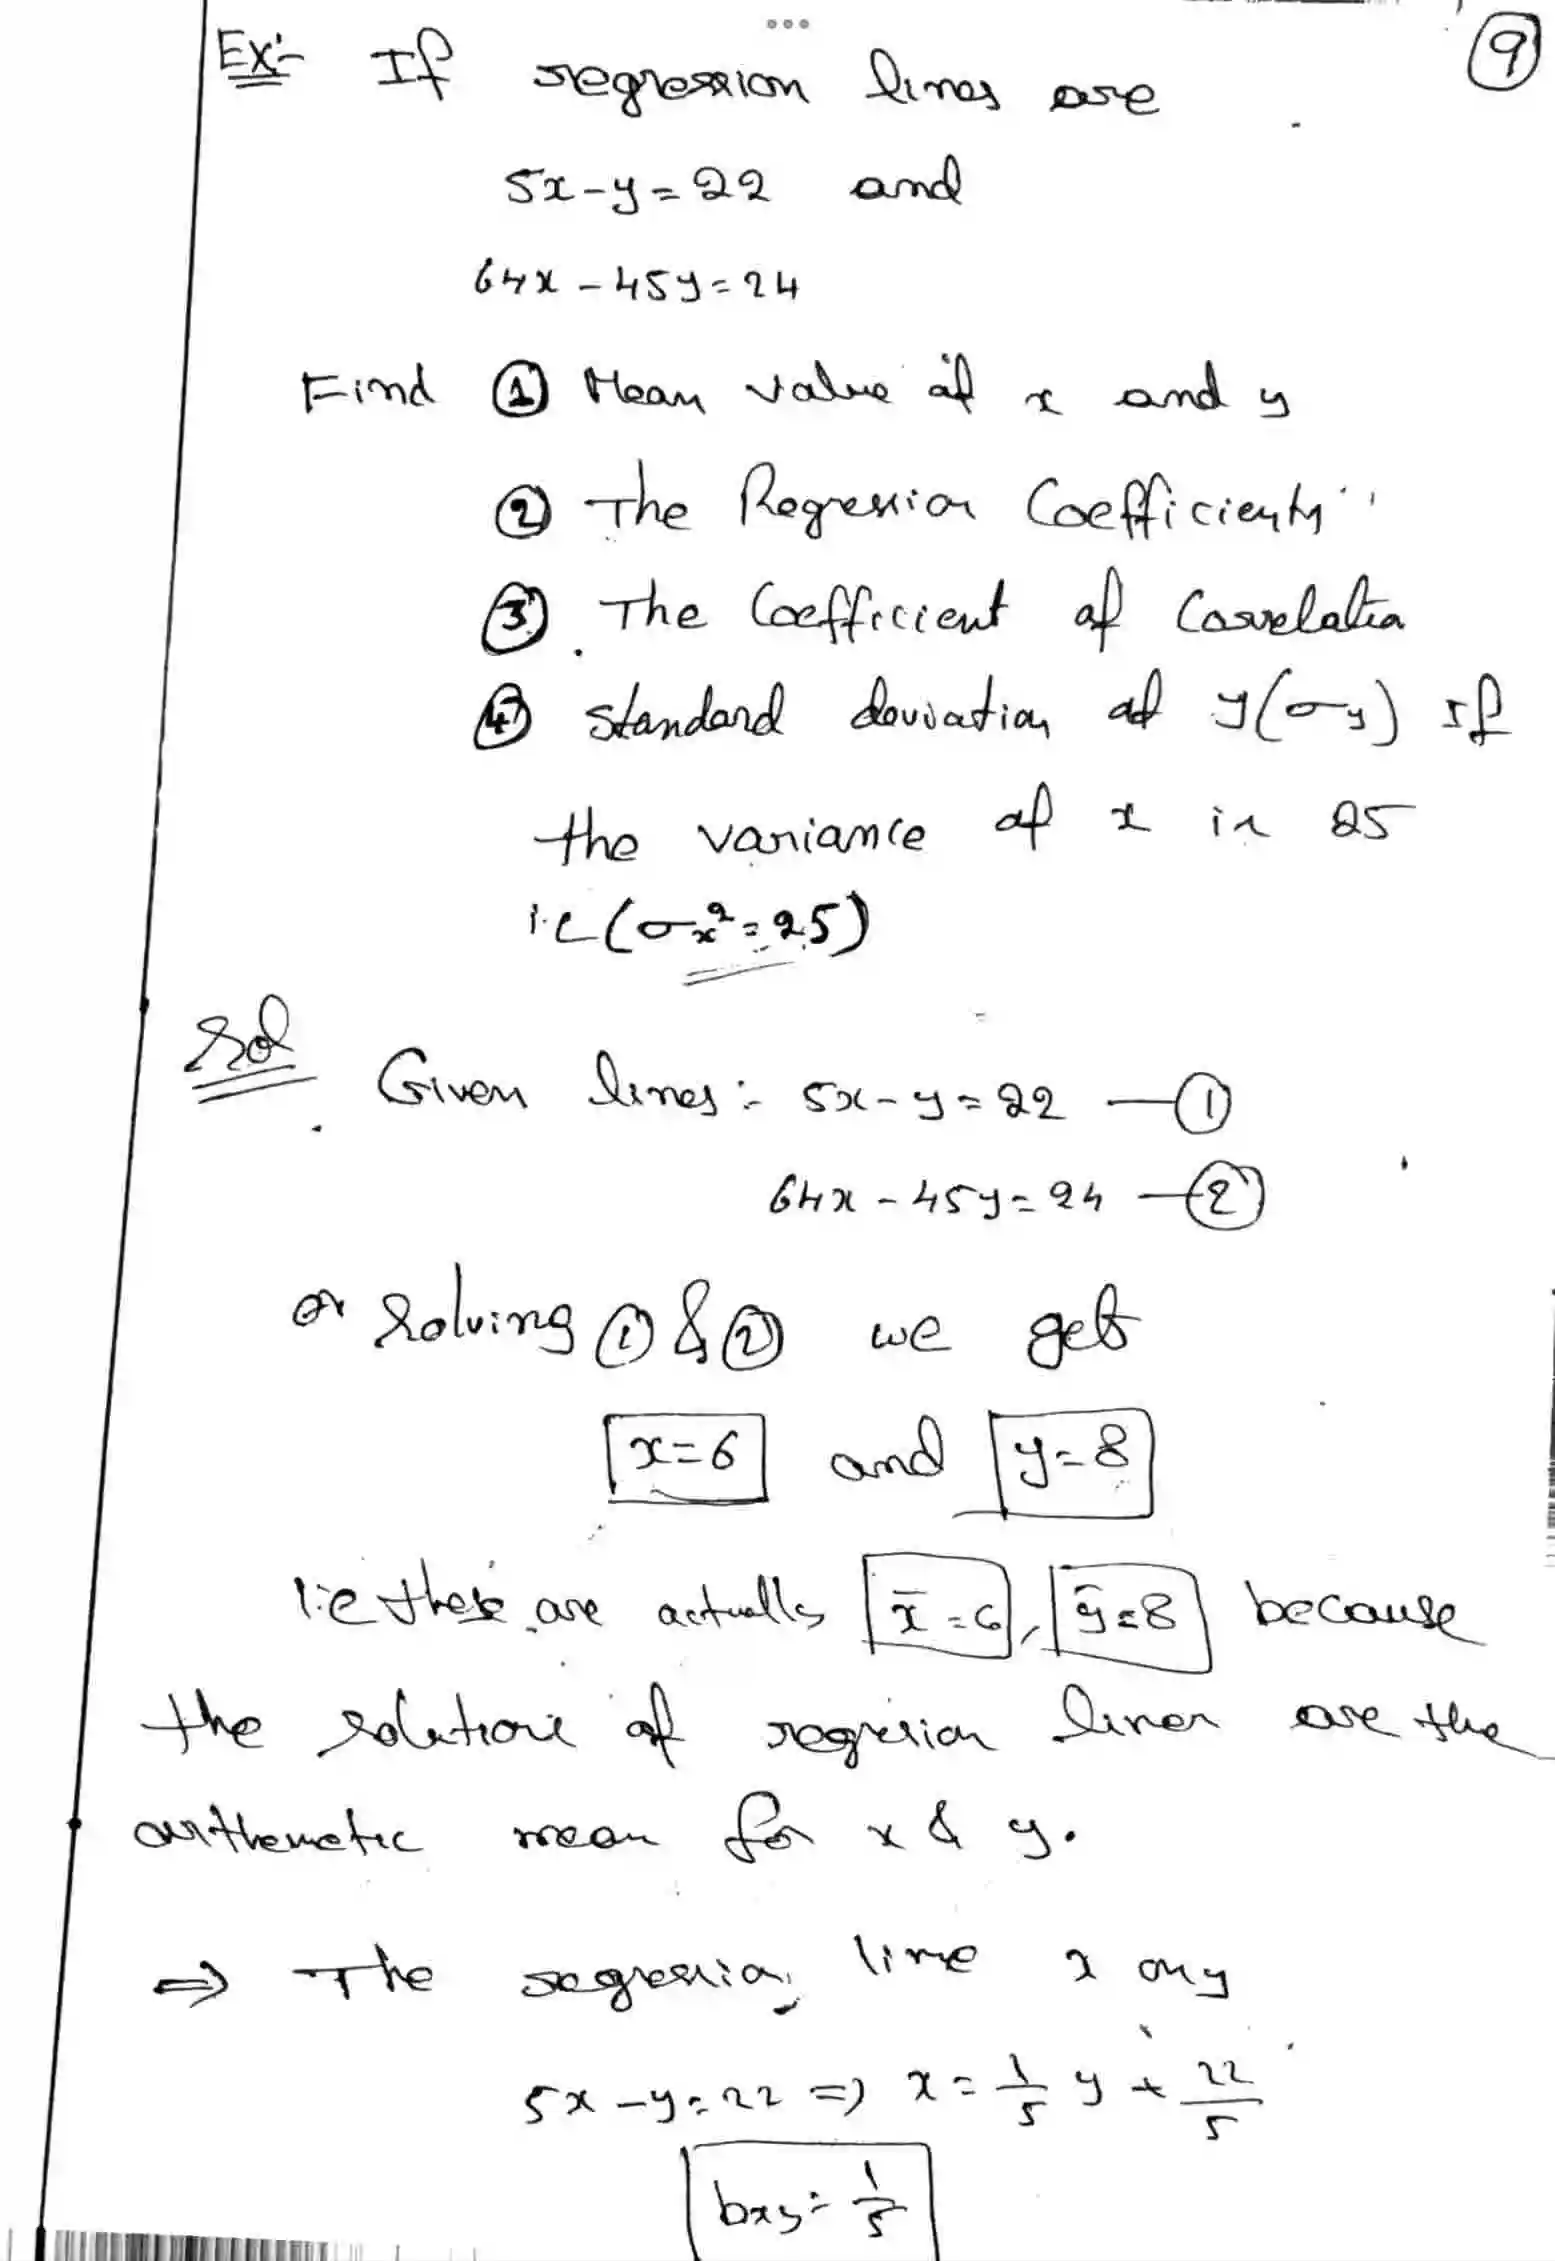 9
Ex:- If regression lines are
5x-y=22 and
64x-45y=24
Find ① Mean value of x and y
② The Regression Coefficients
③ The Coefficient of Correlation
④ standard deviation of y(σy) if
the variance of x is 25
i.e (σx²=25)
Sol Given lines:- 5x-y=22 —①
64x-45y=24 —②
on Solving ① & ② we get
x=6 and y=8
i.e these are actually x̄=6, ȳ=8 because
the solutions of regression lines are the
arithemetic mean for x & y.
⇒ The regression line x on y
5x-y=22 ⇒ x=1/5 y+22/5
bxy=1/5